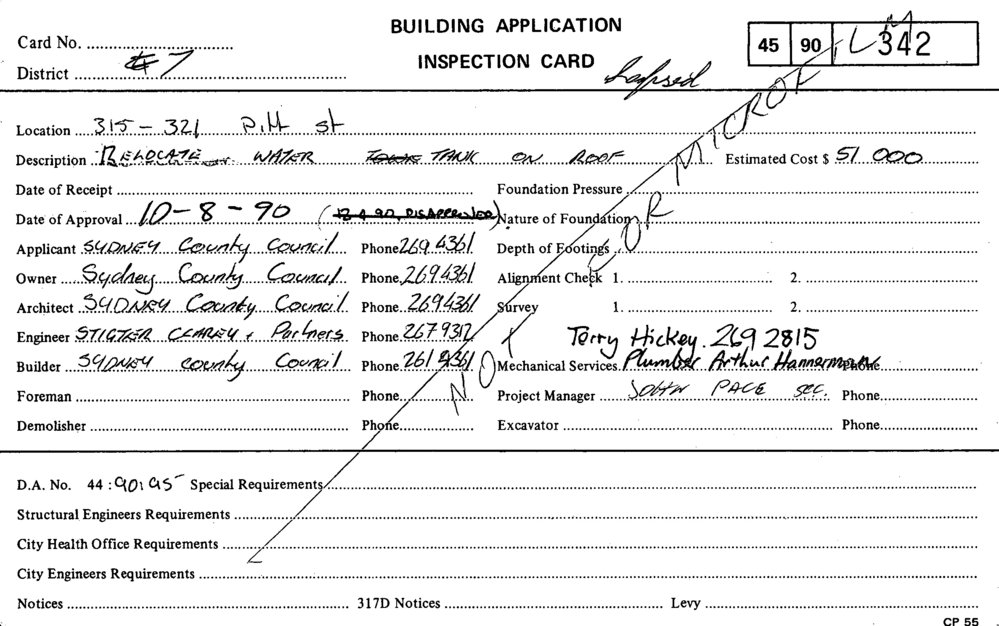 BUILDING APPLICATION
INSPECTION CARD
Card No.
District 7
Lapsed
45 90 342
NOT FOR MICROFILM
Location 315 - 321 Pitt St
Description RELOCATE WATER TANK ON ROOF Estimated Cost $ 51 000
Date of Receipt Foundation Pressure
Date of Approval 10-8-90 (12 4 90 DISAPPROVED) Nature of Foundation
Applicant SYDNEY County Council Phone 269 4361 Depth of Footings
Owner Sydney County Council Phone 269 4361 Alignment Check 1. 2.
Architect SYDNEY County Council Phone 269 4361 Survey 1. 2.
Engineer STIGTER CLAREY + Partners Phone 267 9312 Terry Hickey. 269 2815
Builder SYDNEY County Council Phone 261 4361 Mechanical Services Plumber Arthur Phone
Foreman Phone Project Manager JOHN PACE SEC. Phone
Demolisher Phone Excavator Phone
D.A. No. 44 : 90 : 95 Special Requirements
Structural Engineers Requirements
City Health Office Requirements
City Engineers Requirements
Notices 317D Notices Levy
CP 55